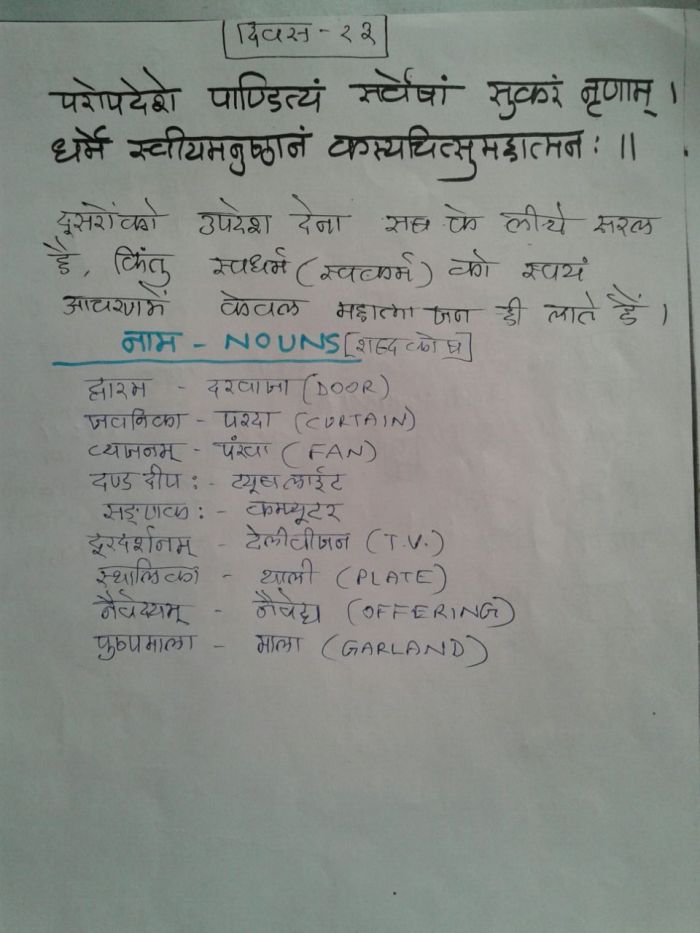 दिवस - २३
परोपदेशे पाण्डित्यं सर्वेषां सुकरं नृणाम् ।
धर्मे स्वीयमनुष्ठानं कस्यचित्सुमहात्मनः ॥
दूसरोंको उपदेश देना सब के लीये सरल
है, किंतु स्वधर्म (स्वकर्म) को स्वयं
आचरणमें केवल महात्मा जन ही लाते हैं ।
नाम - NOUNS [शब्दकोष]
द्वारम - दरवाजा (DOOR)
जवनिका - परदा (CURTAIN)
व्यजनम् - पंखा (FAN)
दण्ड दीपः - ट्यूबलाईट
सङ्णकः - कम्प्यूटर
दूरदर्शनम् - टेलीवीजन (T.V.)
स्थालिका - थाली (PLATE)
नैवेद्यम् - नैवेद्य (OFFERING)
पुष्पमाला - माला (GARLAND)